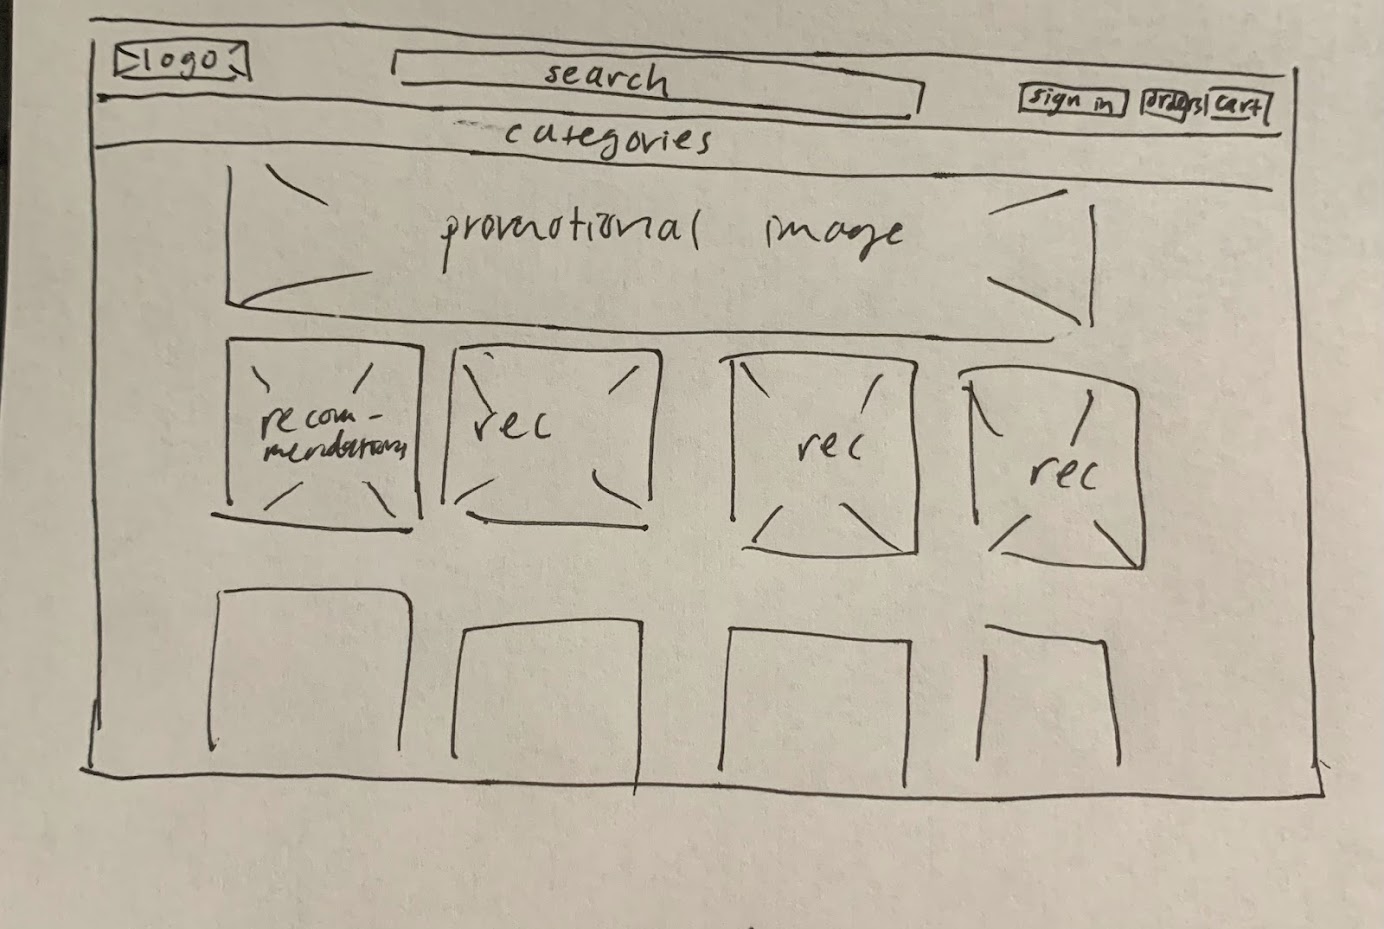 logo
search
sign in
orders
cart
categories
promotional image
recom-
mendations
rec
rec
rec